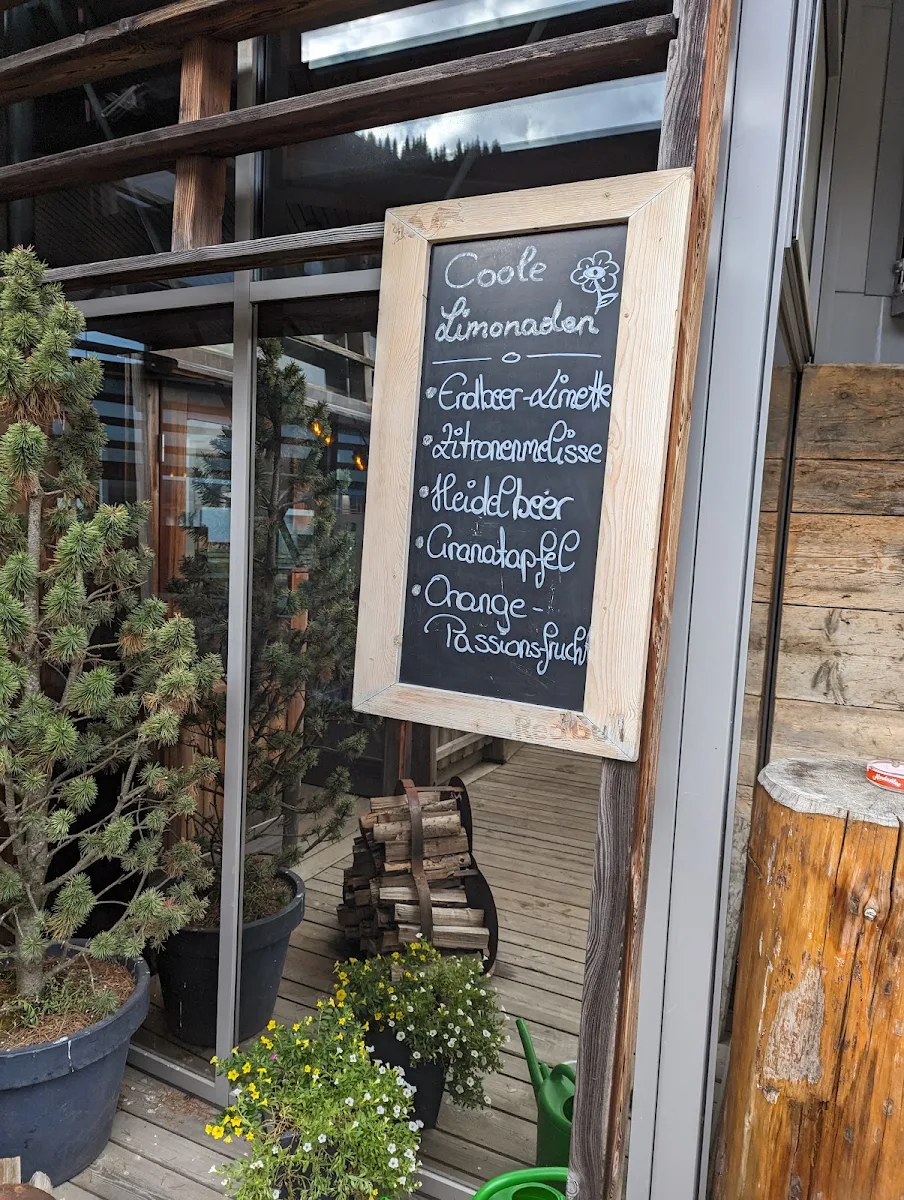 Coole
Limonaden
• Erdbeer-Limette
• Zitronenmelisse
• Heidelbeer
• Granatapfel
• Orange-
Passionsfrucht